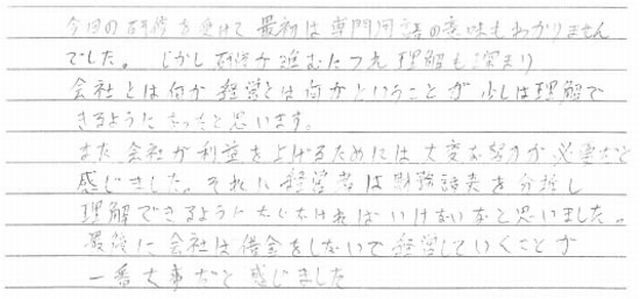 今回の研修を受けて最初は専門用語の意味もわかりません
でした。しかし研修が進むにつれ理解も深まり
会社とは何か経営とは何かということが少しは理解で
きるようになったと思います。
また会社が利益を上げるためには大変な努力が必要だと
感じました。それに経営者は財務諸表を分析し
理解できるようにならなければいけないなと思いました。
最後に会社は借金をしないで経営していくことが
一番大事だと感じました